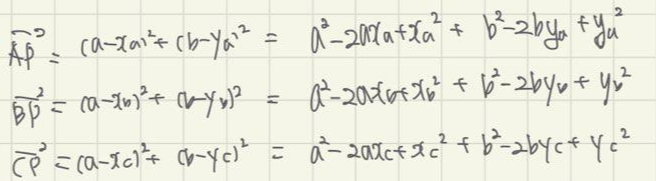 AP² = (a-xa)²+(b-ya)² = a²-2axa+xa² + b²-2bya+ya²
BP² = (a-xb)²+(b-yb)² = a²-2axb+xb² + b²-2byb+yb²
CP² = (a-xc)²+(b-yc)² = a²-2axc+xc² + b²-2byc+yc²